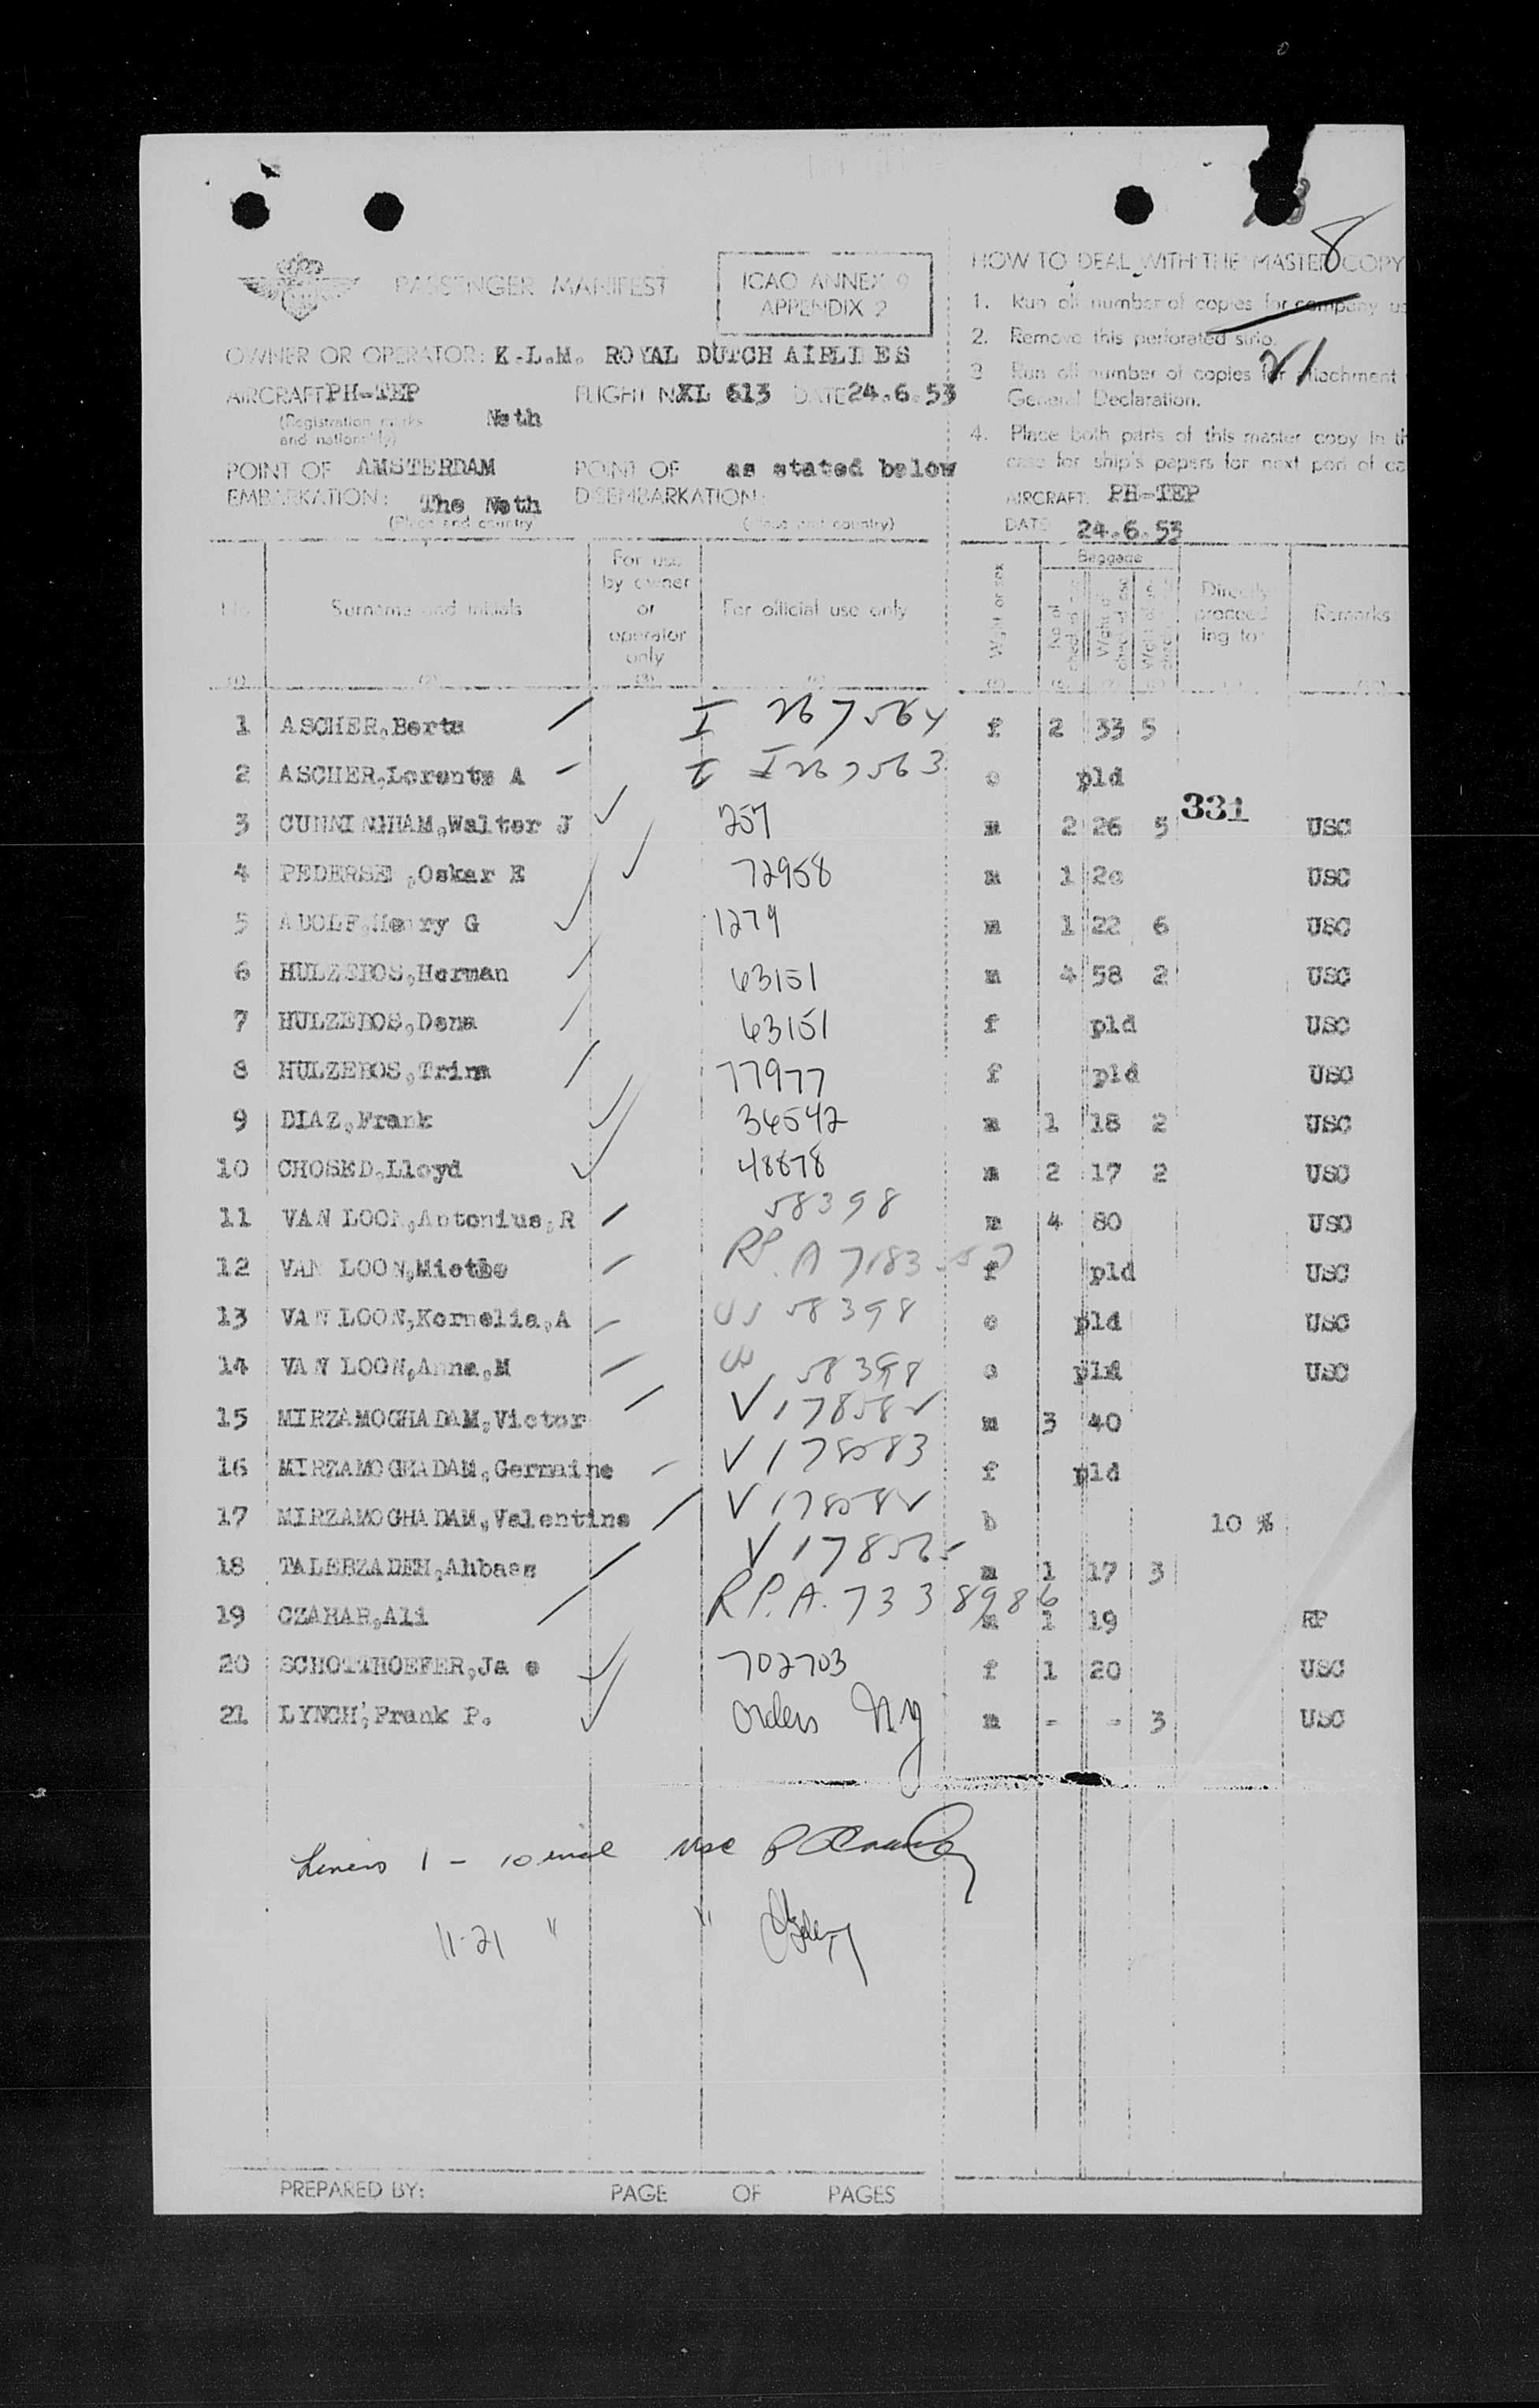 8
PASSENGER MANIFEST
ICAO ANNEX 9
APPENDIX 2
OWNER OR OPERATOR: K.L.M. ROYAL DUTCH AIRLINES
AIRCRAFT PH-TEP FLIGHT N KL 613 DATE 24.6.53
(Registration marks and nationality) Neth
POINT OF EMBARKATION: AMSTERDAM The Neth
(Place and country)
POINT OF DISEMBARKATION: as stated below
(Place and country)
HOW TO DEAL WITH THE MASTER COPY
1. Run off number of copies for company us
2. Remove this perforated strip.
21
3 Run off number of copies for attachment
General Declaration.
4. Place both parts of this master copy in th
case for ship's papers for next port of ca
AIRCRAFT: PH-TEP
DATE 24.6.53
No Surname and initials For use by owner or operator only For official use only Wght or sex Baggage Directly proceed ing to: Remarks
(1) (2) (3) (4) (5) (6)
1 ASCHER,Berta I 267564 f 2 33 5
2 ASCHER,Lorentz A I267563 c pld
331
3 CUNNINHHAM,Walter J 257 m 2 26 5 USC
4 PEDERSE ,Oskar E 72958 m 1 20 USC
5 ADOLF,Henry G 1279 m 1 22 6 USC
6 HULZEBOS,Herman 63151 m 4 58 2 USC
7 HULZEBOS,Dena 63151 f pld USC
8 HULZEBOS,Trina 77977 f pld USC
9 DIAZ,Frank 36542 m 1 18 2 USC
10 CHOSED,Lloyd 48878 m 2 17 2 USC
11 VAN LOON,Antonius,R 58398 m 4 80 USC
12 VAN LOON,Miethe RP. A 7183 f pld USC
13 VAN LOON,Kornelia,A 58398 c pld USC
14 VAN LOON,Anna,M 58398 c pld USC
15 MIRZAMOGHADAM,Victor V 178582 m 3 40
16 MIRZAMOGHADAM,Germaine V 178583 f pld
17 MIRZAMOGHADAM,Valentine V 178582 b 10 %
18 TALEBZADEH,Ahbass V 178565 m 1 17 3
19 CZAHAR,Ali RP.A. 7338986 m 1 19 RP
20 SCHOTTHOEFER,Ja e 702703 f 1 20 USC
21 LYNCH,Frank P. orders N.Y m - - 3 USC
1 - 10 incl
11-21 " "
PREPARED BY: PAGE OF PAGES